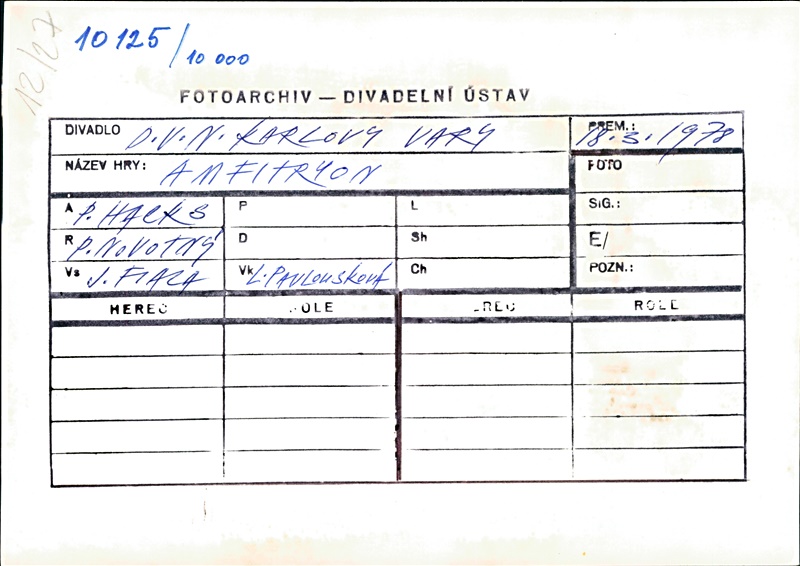 12/27
10125/10 000
FOTOARCHIV — DIVADELNÍ ÚSTAV
DIVADLO D.V.N. KARLOVY VARY PREM.: 18.3.1978
NÁZEV HRY: AMFITRYON FOTO
A P. HACKS P L SIG.:
R P. NOVOTNÝ D Sh E/
Vs J. FIALA Vk L. PAVLOUSKOVÁ Ch POZN.:
HEREC ROLE HEREC ROLE